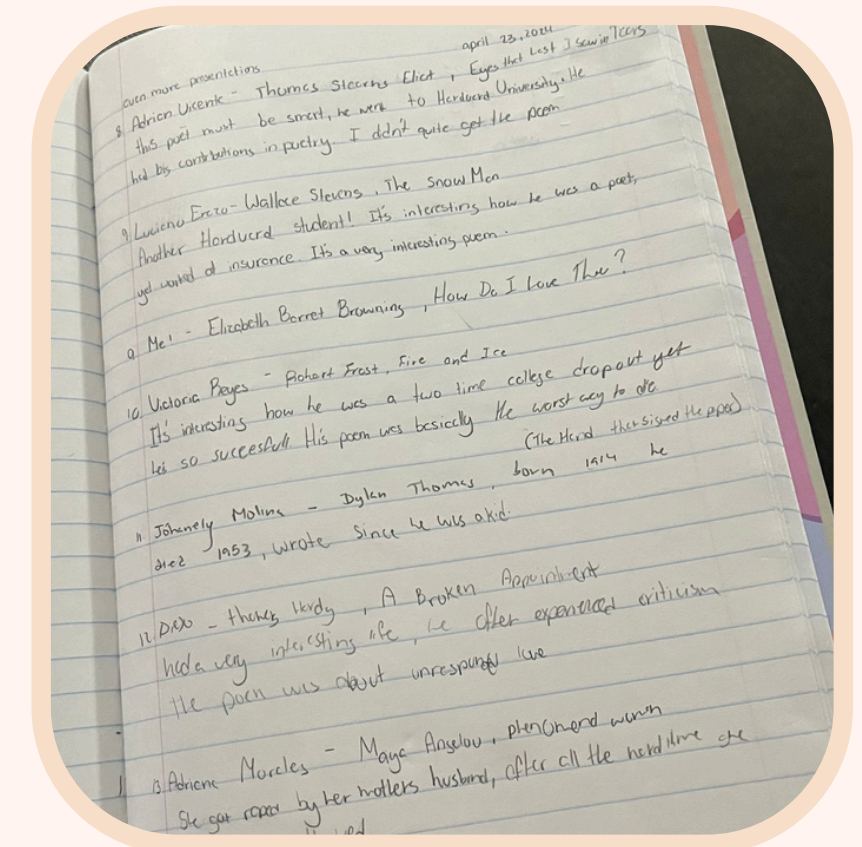 april 23, 2024
even more presentations
8. Adrian Vicente - Thomas Stearns Eliot, Eyes that last I saw in Tears
this poet must be smart, he went to Harduard University. He
had big contributions in poetry. I didn't quite get the poem
9. Luciano Erazo - Wallace Stevens, The Snow Man
Another Harduard student! It's interesting how he was a poet,
yet worked at insurance. It's a very interesting poem.
9 Me! - Elizabeth Barret Browning, How Do I Love Thee?
10. Victoria Reyes - Robert Frost, Fire and Ice
It's interesting how he was a two time college dropout yet
he's so succesfull. His poem was basically the worst way to die
(The Hand that signed the paper)
11. Johanely Molina - Dylan Thomas, born 1914 he
died 1953, wrote since he was a kid.
12. - thomas Hardy, A Broken Appointment
had a very interesting life, he often experienced criticism
the poem was about love
13. Adriana Morales - Maya Angelou, phenomenal woman
She got raped by her mothers husband, after all the hard time she